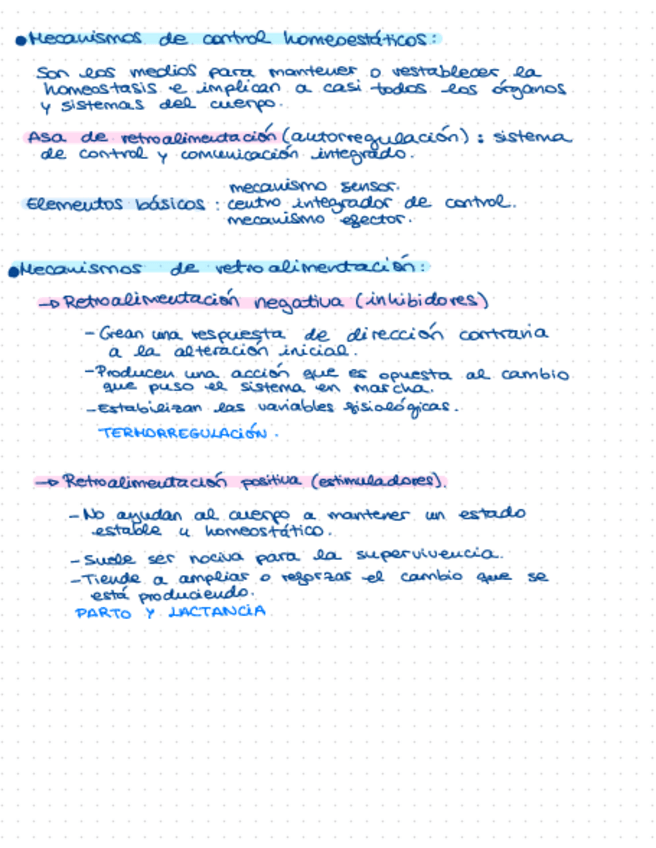 ●Mecanismos de control homeoestáticos:
Son los medios para mantener o restablecer la
homeostasis e implican a casi todos los órganos
y sistemas del cuerpo.
Asa de retroalimentación (autorregulación): sistema
de control y comunicación integrado.
mecanismo sensor.
Elementos básicos: centro integrador de control.
mecanismo efector.
●Mecanismos de retroalimentación:
→ Retroalimentación negativa (inhibidores)
- Crean una respuesta de dirección contraria
a la alteración inicial.
- Producen una acción que es opuesta al cambio
que puso el sistema en marcha.
- Estabilizan las variables fisiológicas.
TERMORREGULACIÓN.
→ Retroalimentación positiva (estimuladores).
- No ayudan al cuerpo a mantener un estado
estable u homeostático.
- Suele ser nociva para la supervivencia.
- Tiende a ampliar o reforzar el cambio que se
está produciendo.
PARTO Y LACTANCIA